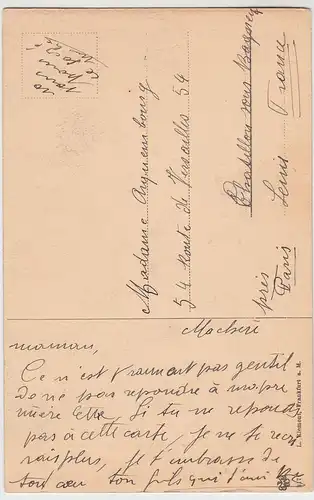 Madame Arquembourg
54 Route de Versailles 54
Chatillon sous Bagneux
près Paris Seine France
Ma chère
maman,
Ce n'est vraiment pas gentil
de ne pas repondre à ma pre
mière lette. Si tu ne repond
pas à cette carte, je ne te recri
rais plus, je t'embrasse de
tou cœu ton fils qui t'aime
L. Klement, Frankfurt a. M.